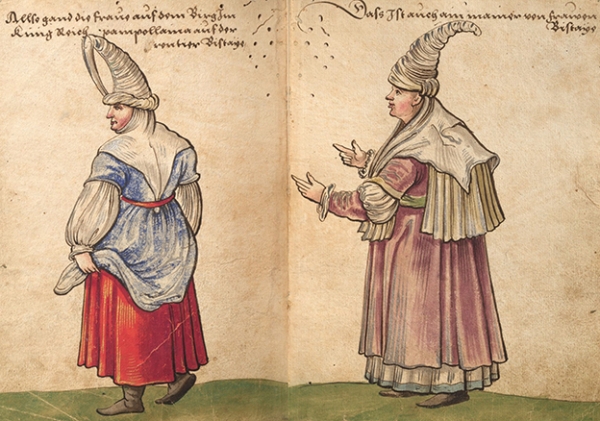 Allso gand die frawe auf dem Birg Im
Küng Reich pampollania auf der
rentier Bistaye
Das Ist auch ain manier von frawen
Bistaye